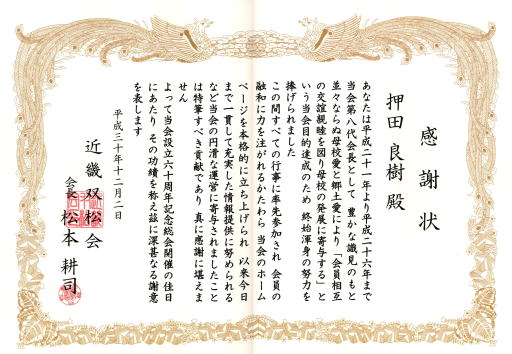 感謝状
押田良樹殿
あなたは平成二十一年より平成二十六年まで
当会第八代会長として 豊かな識見のもと
並々ならぬ母校愛と郷土愛により「会員相互
の交誼親睦を図り母校の発展に寄与する」と
いう当会目的達成のため 終始渾身の努力を
捧げられました
この間すべての行事に率先参加され 会員の
融和に力を注がれるかたわら 当会のホーム
ページを本格的に立ち上げられ 以来今日
まで一貫して充実した情報提供に努められる
など当会の円滑な運営に寄与されましたこと
は特筆すべき貢献であり 真に感謝に堪えま
せん
よって当会設立六十周年記念総会開催の佳日
にあたり その功績を称え茲に深甚なる謝意
を表します
平成三十年十二月二日
近畿双松会
会長 松本耕司